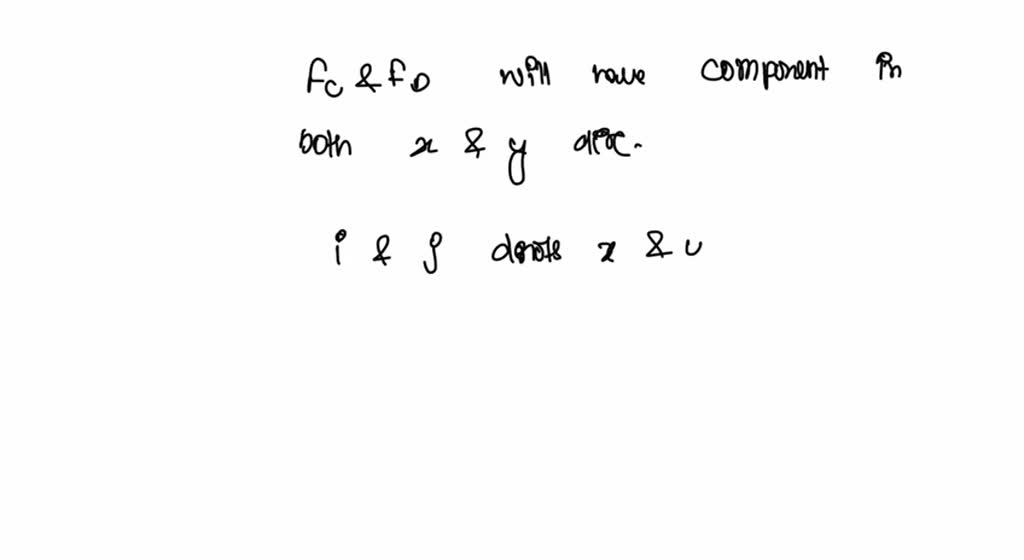 Fc & FD will have component in
both x & y dirc.
i & j denots x & u